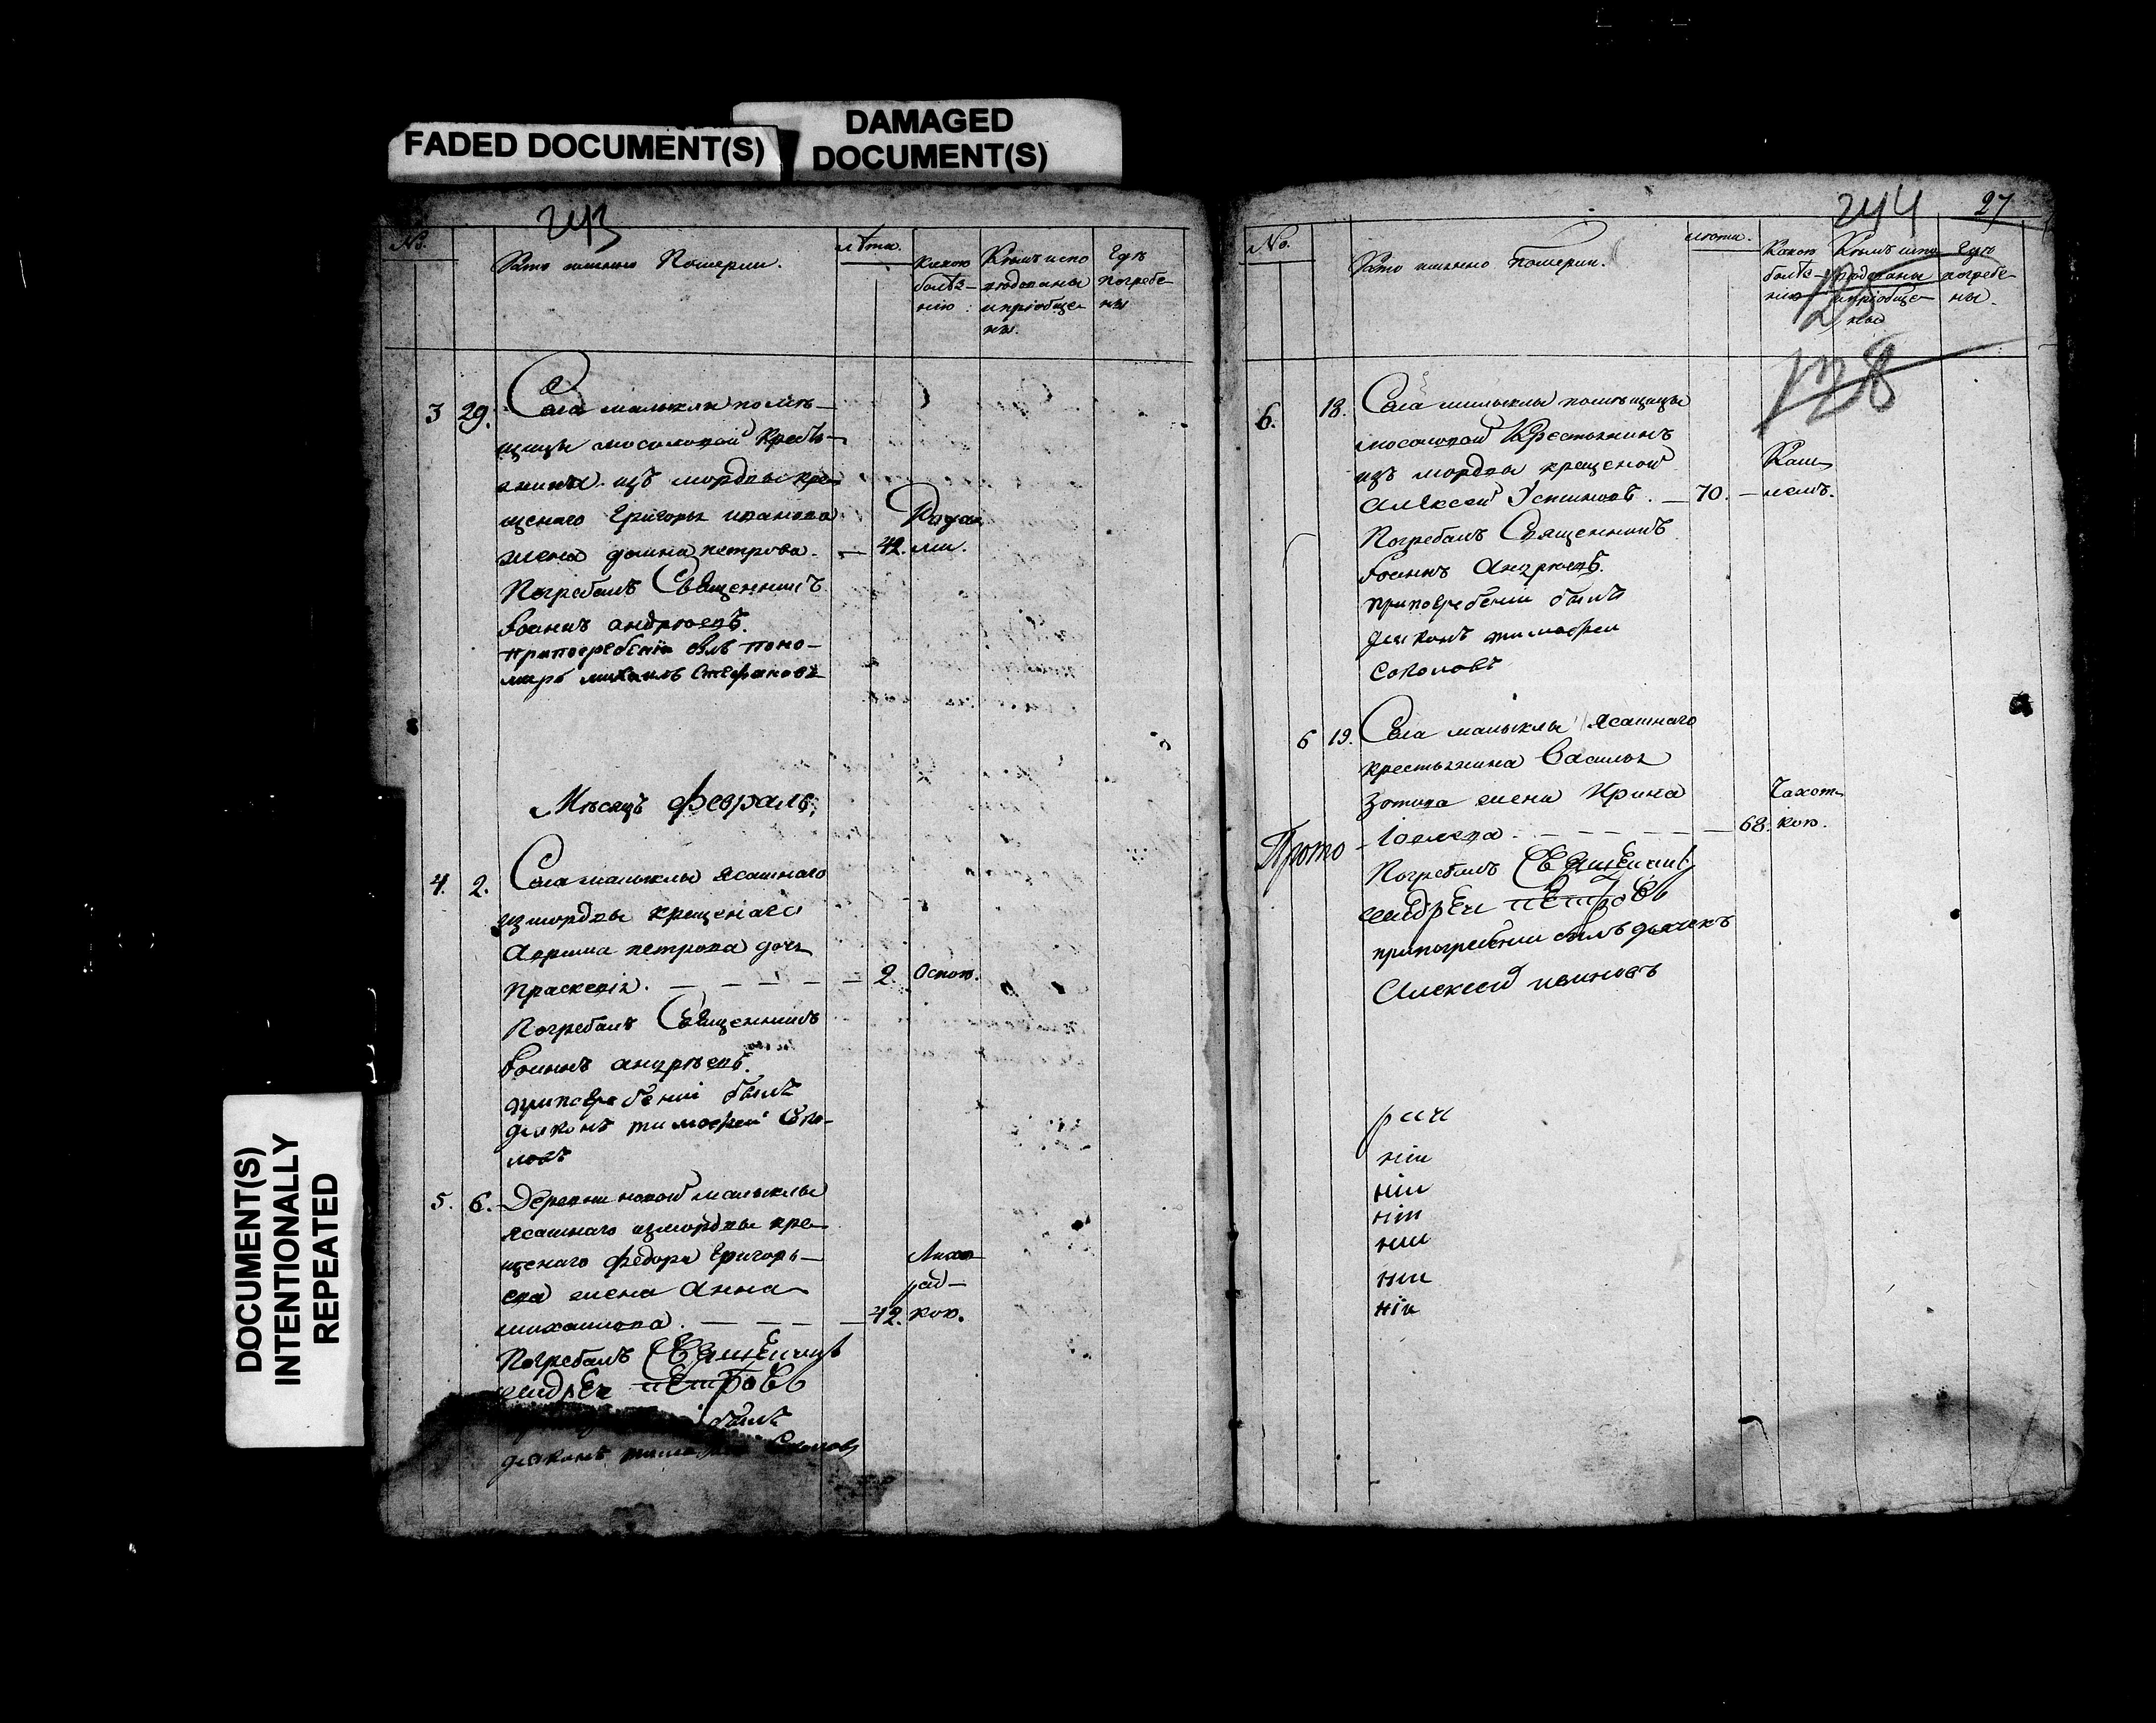 FADED DOCUMENT(S)
DAMAGED
DOCUMENT(S)
DOCUMENT(S)
INTENTIONALLY
REPEATED
243
№.
Кто именно Померли.
лѣта.
Какою
болѣз-
нію
Кѣмъ испо
вѣдованы
и пріобще-
ны.
Гдѣ
погребе-
ны
3 29. Села малыклы помѣ-
щицы мосоловой крестья-
нина изъ мордвы кре-
щенаго Григорья иванова
жена домна петрова. — 42. Рода
ми.
Погребалъ Священникъ
Іоаннъ андрѣевъ.
припогребеніи былъ поно-
марь михаилъ Стефановъ
Мѣсяцъ февраль;
4. 2. Села малыклы ясашнаго
измордвы крещенаго
петрова дочь
Праскевія. — — — — 2. Оспою.
Погребалъ Священникъ
Іоаннъ андрѣевъ.
припогребеніи былъ
діаконъ тимофей Соко-
ловъ
5. 6. Деревни новой малыклы
ясашнаго измордвы кре-
щенаго федора Григорь-
ева жена Анна
михаилова. — — — — 42. Лихо
рад-
кою.
Погребалъ Священникъ
андрей петровъ
былъ
діаконъ Соколовъ
244
27
№.
Кто именно померли.
лѣта.
Какою
болѣз-
нію
Кѣмъ испо
вѣдованы
и пріобще-
ны
Гдѣ
погребе-
ны.
125
128
6. 18. Села малыклы помѣщицы
мосоловой Крестьянинъ
изъ мордвы крещеной
Алексей Устиновъ. — 70. — Каш-
лемъ.
Погребалъ Священникъ
Іоаннъ Андрѣевъ.
припогребеніи былъ
діаконъ тимофеи
Соколовъ
6 19. Села малыклы ясашнаго
крестьянина Василья
Зотова жена Ирина
— — — — 68. Чахот-
кою.
Прото
Погребалъ Священникъ
андрей петровъ
припогребеніи былъ дьячекъ
Алексей ивановъ
нiи
нiи
нiи
нiи
нiи
нiи